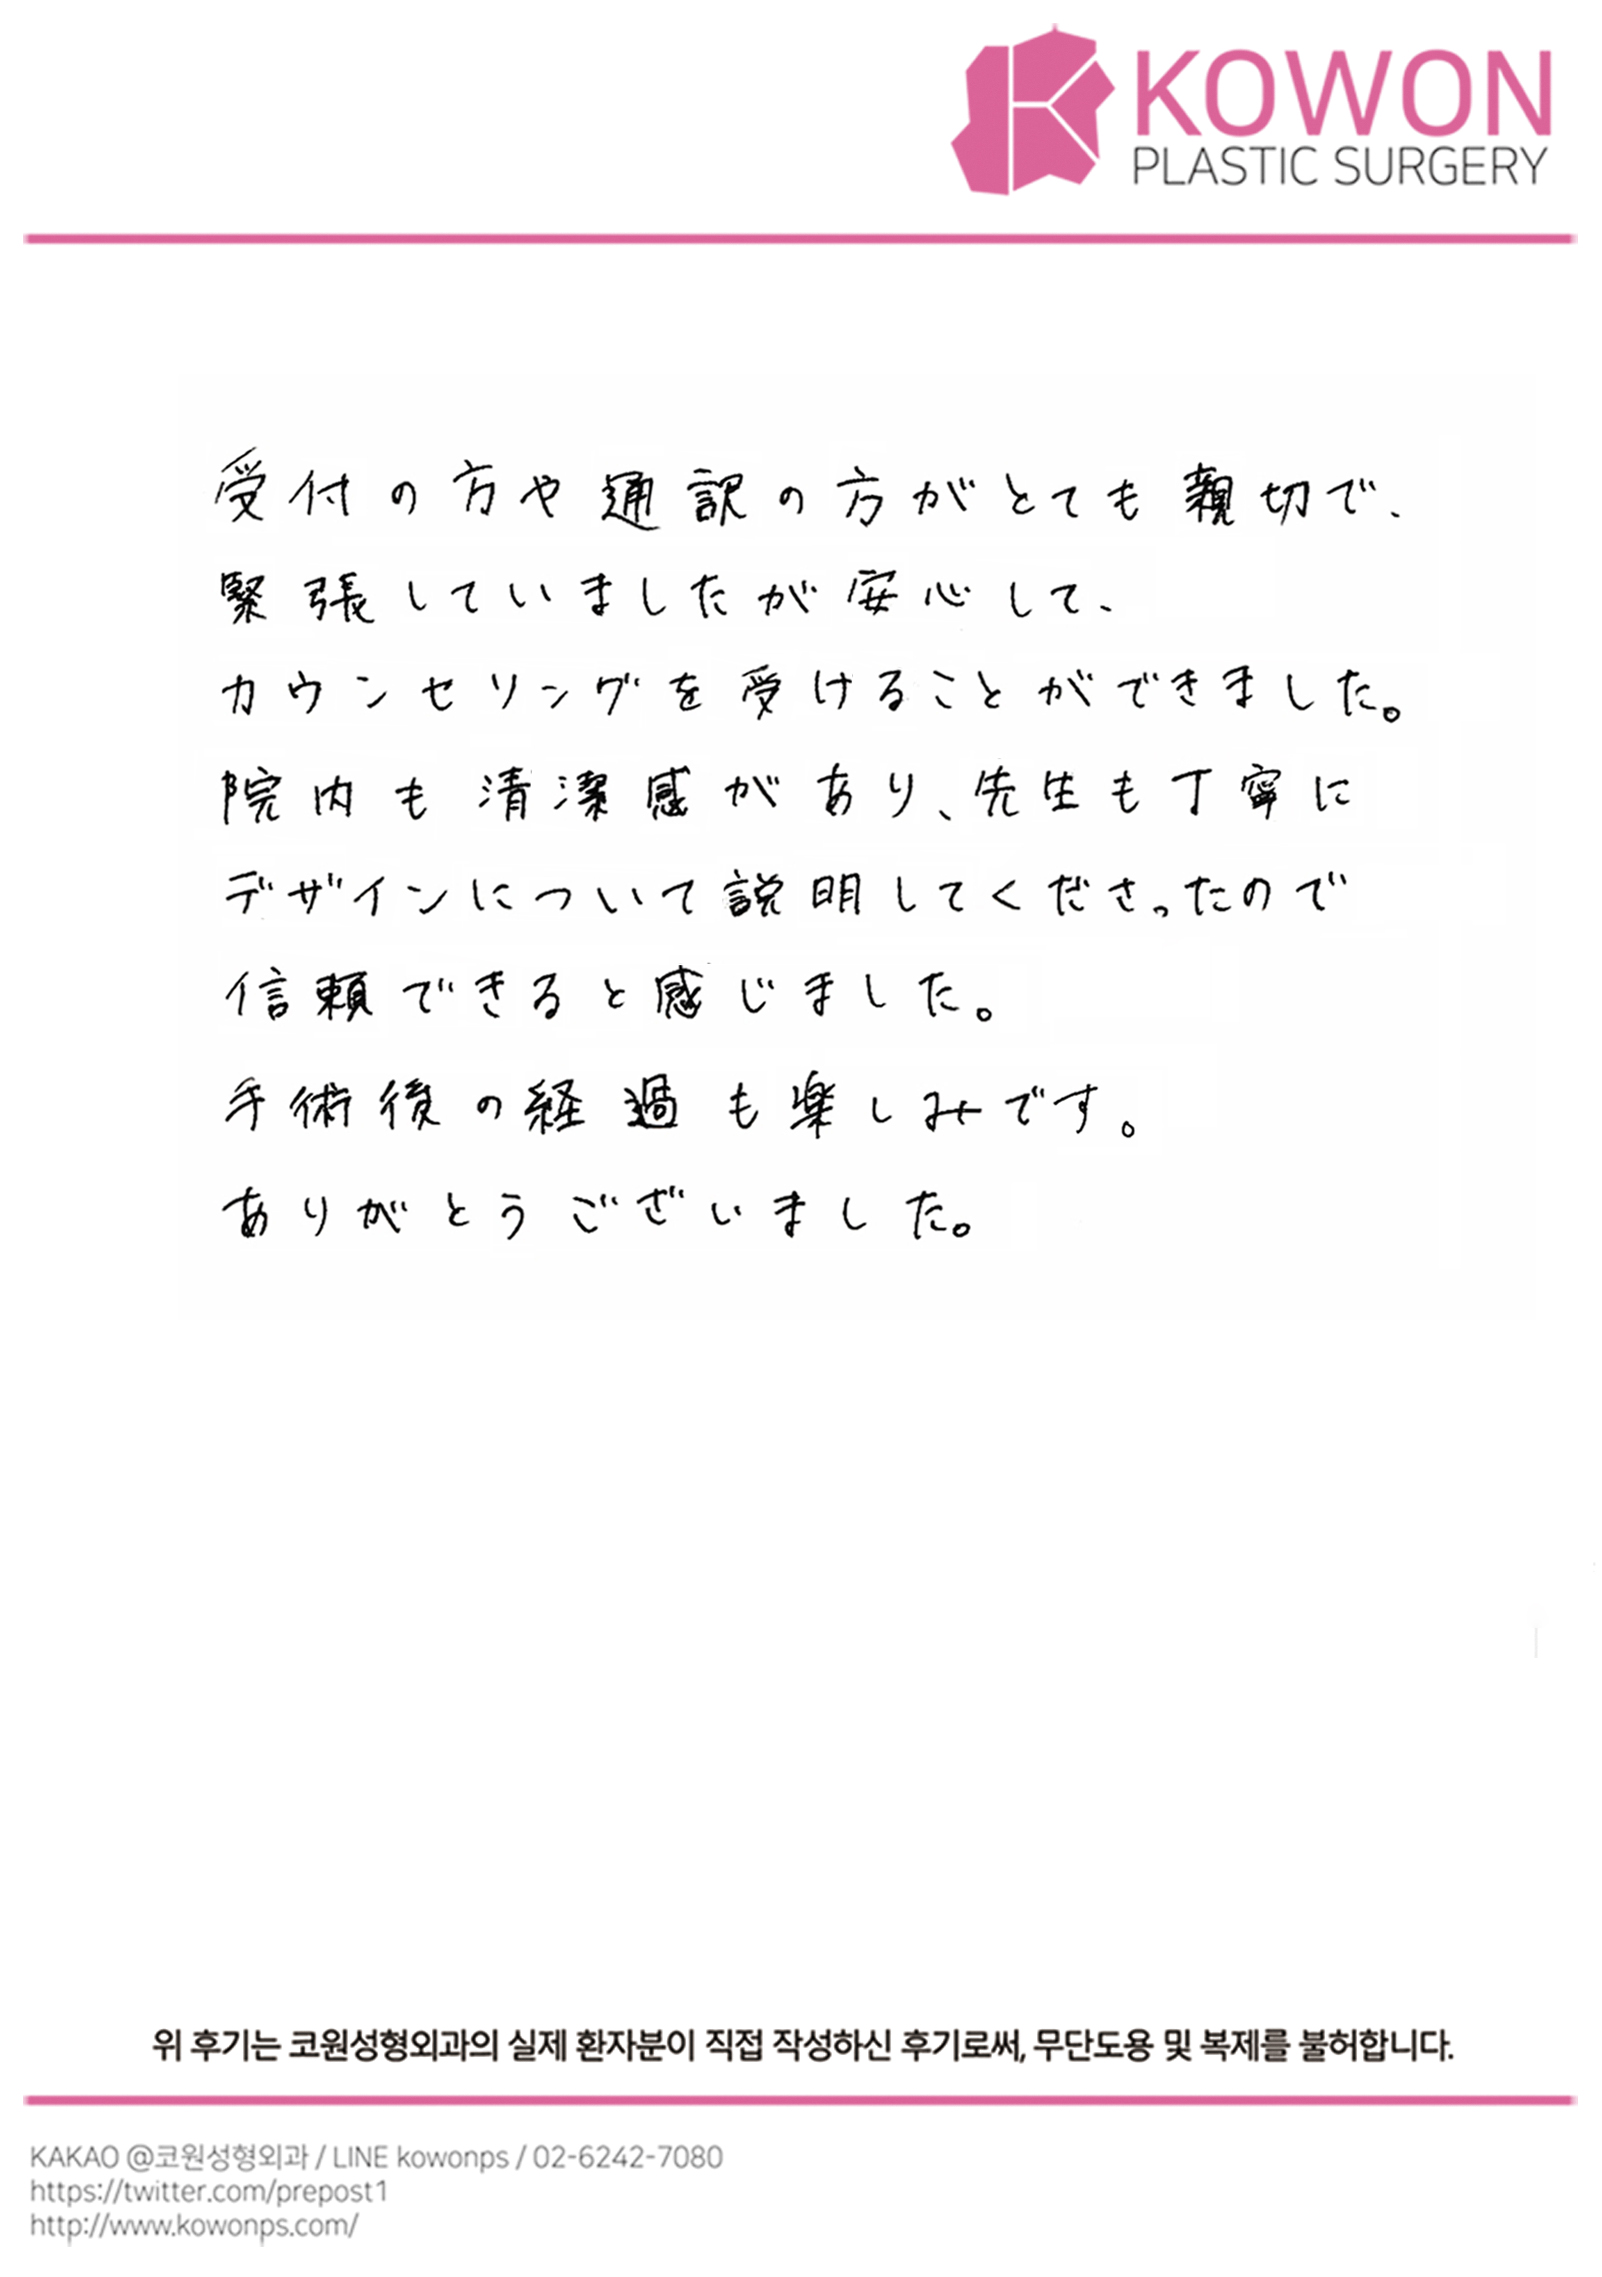 KOWON
PLASTIC SURGERY
受付の方や通訳の方がとても親切で、
緊張していましたが安心して、
カウンセリングを受けることができました。
院内も清潔感があり、先生も丁寧に
デザインについて説明してくださったので
信頼できると感じました。
手術後の経過も楽しみです。
ありがとうございました。
위 후기는 코원성형외과의 실제 환자분이 직접 작성하신 후기로써, 무단도용 및 복제를 불허합니다.
KAKAO @코원성형외과 / LINE kowonps / 02-6242-7080
https://twitter.com/prepost1
http://www.kowonps.com/